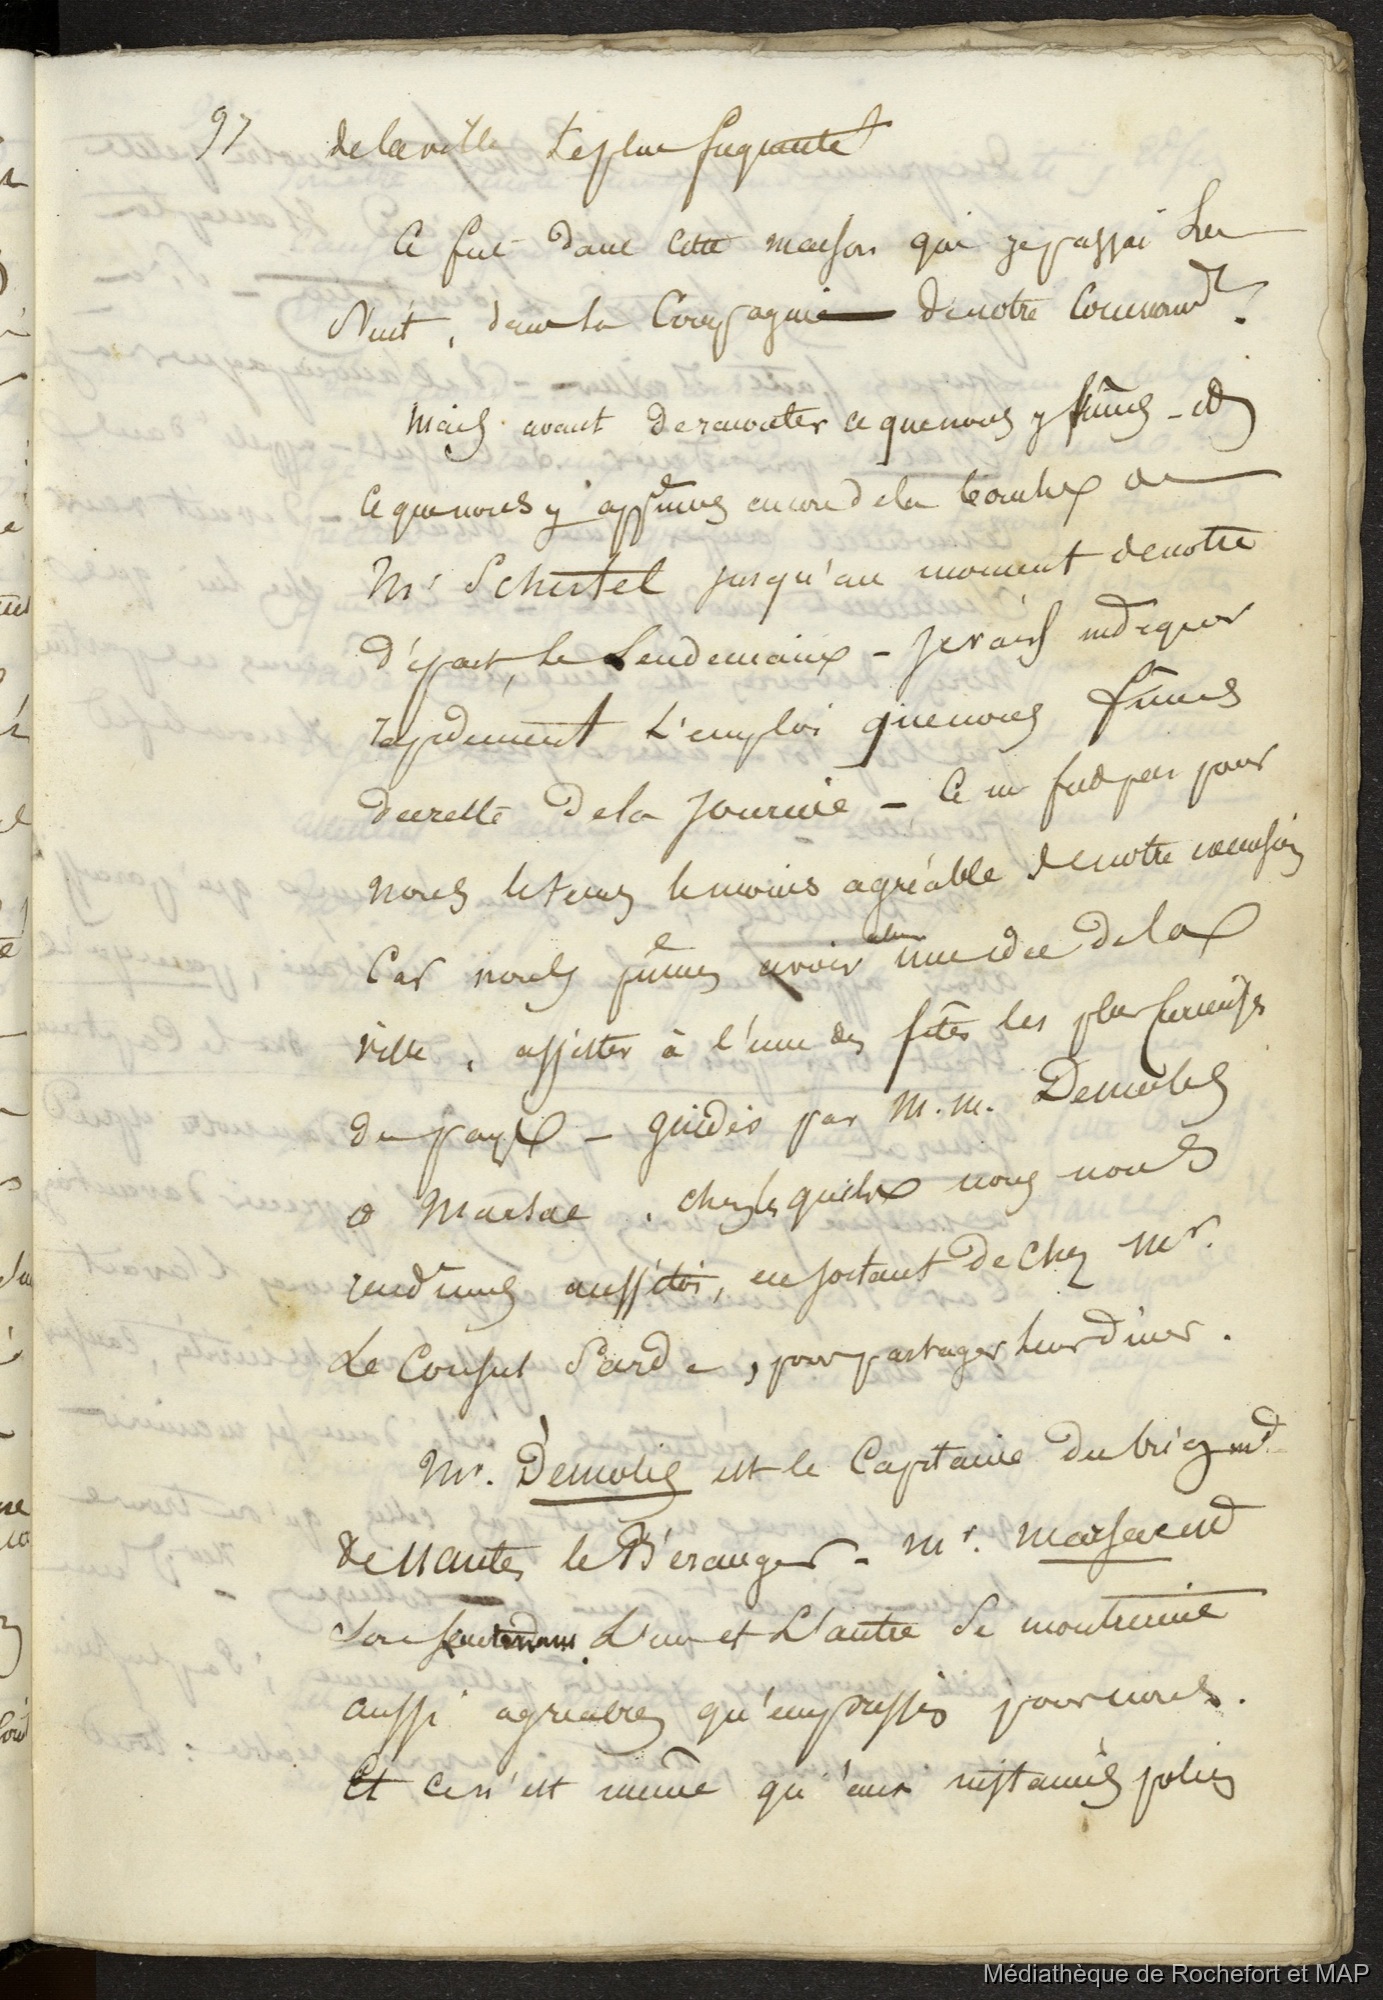 97 de la ville la plus frequenté
Ce fut dans cette maison que je passai La
Nuit, dans la Compagnie de notre Command.t
Mais avant de raconter ce que nous y fûmes - et
ce que nous y apprîmes encore de la bouche de
Mr Schertel jusqu'au moment de notre
départ, le Lendemain - je vais indiquer
rapidement L'emploi que nous fîmes
du reste de la journée - Ce ne fut pas pour
nous le tems le moins agréable de notre excursion
Car nous pûmes avoir une idée de la
ville, assister à l'une des fêtes les plus curieuses
du pays - guidés par M.M. Demolie
et Marsac . chez lesquels nous nous
rendîmes aussitôt, en sortant de chez Mr.
Le Consul Sarde, pour partager leur dîner.
Mr. Démolie est le Capitaine du brig md
de Nantes le Béranger - Mr. Marsac
Son . L'un et L'autre se montrèrent
aussi agréables qu'empressés pour nous.
Et ce n'est même qu'aux instances polies
Médiathèque de Rochefort et MAP